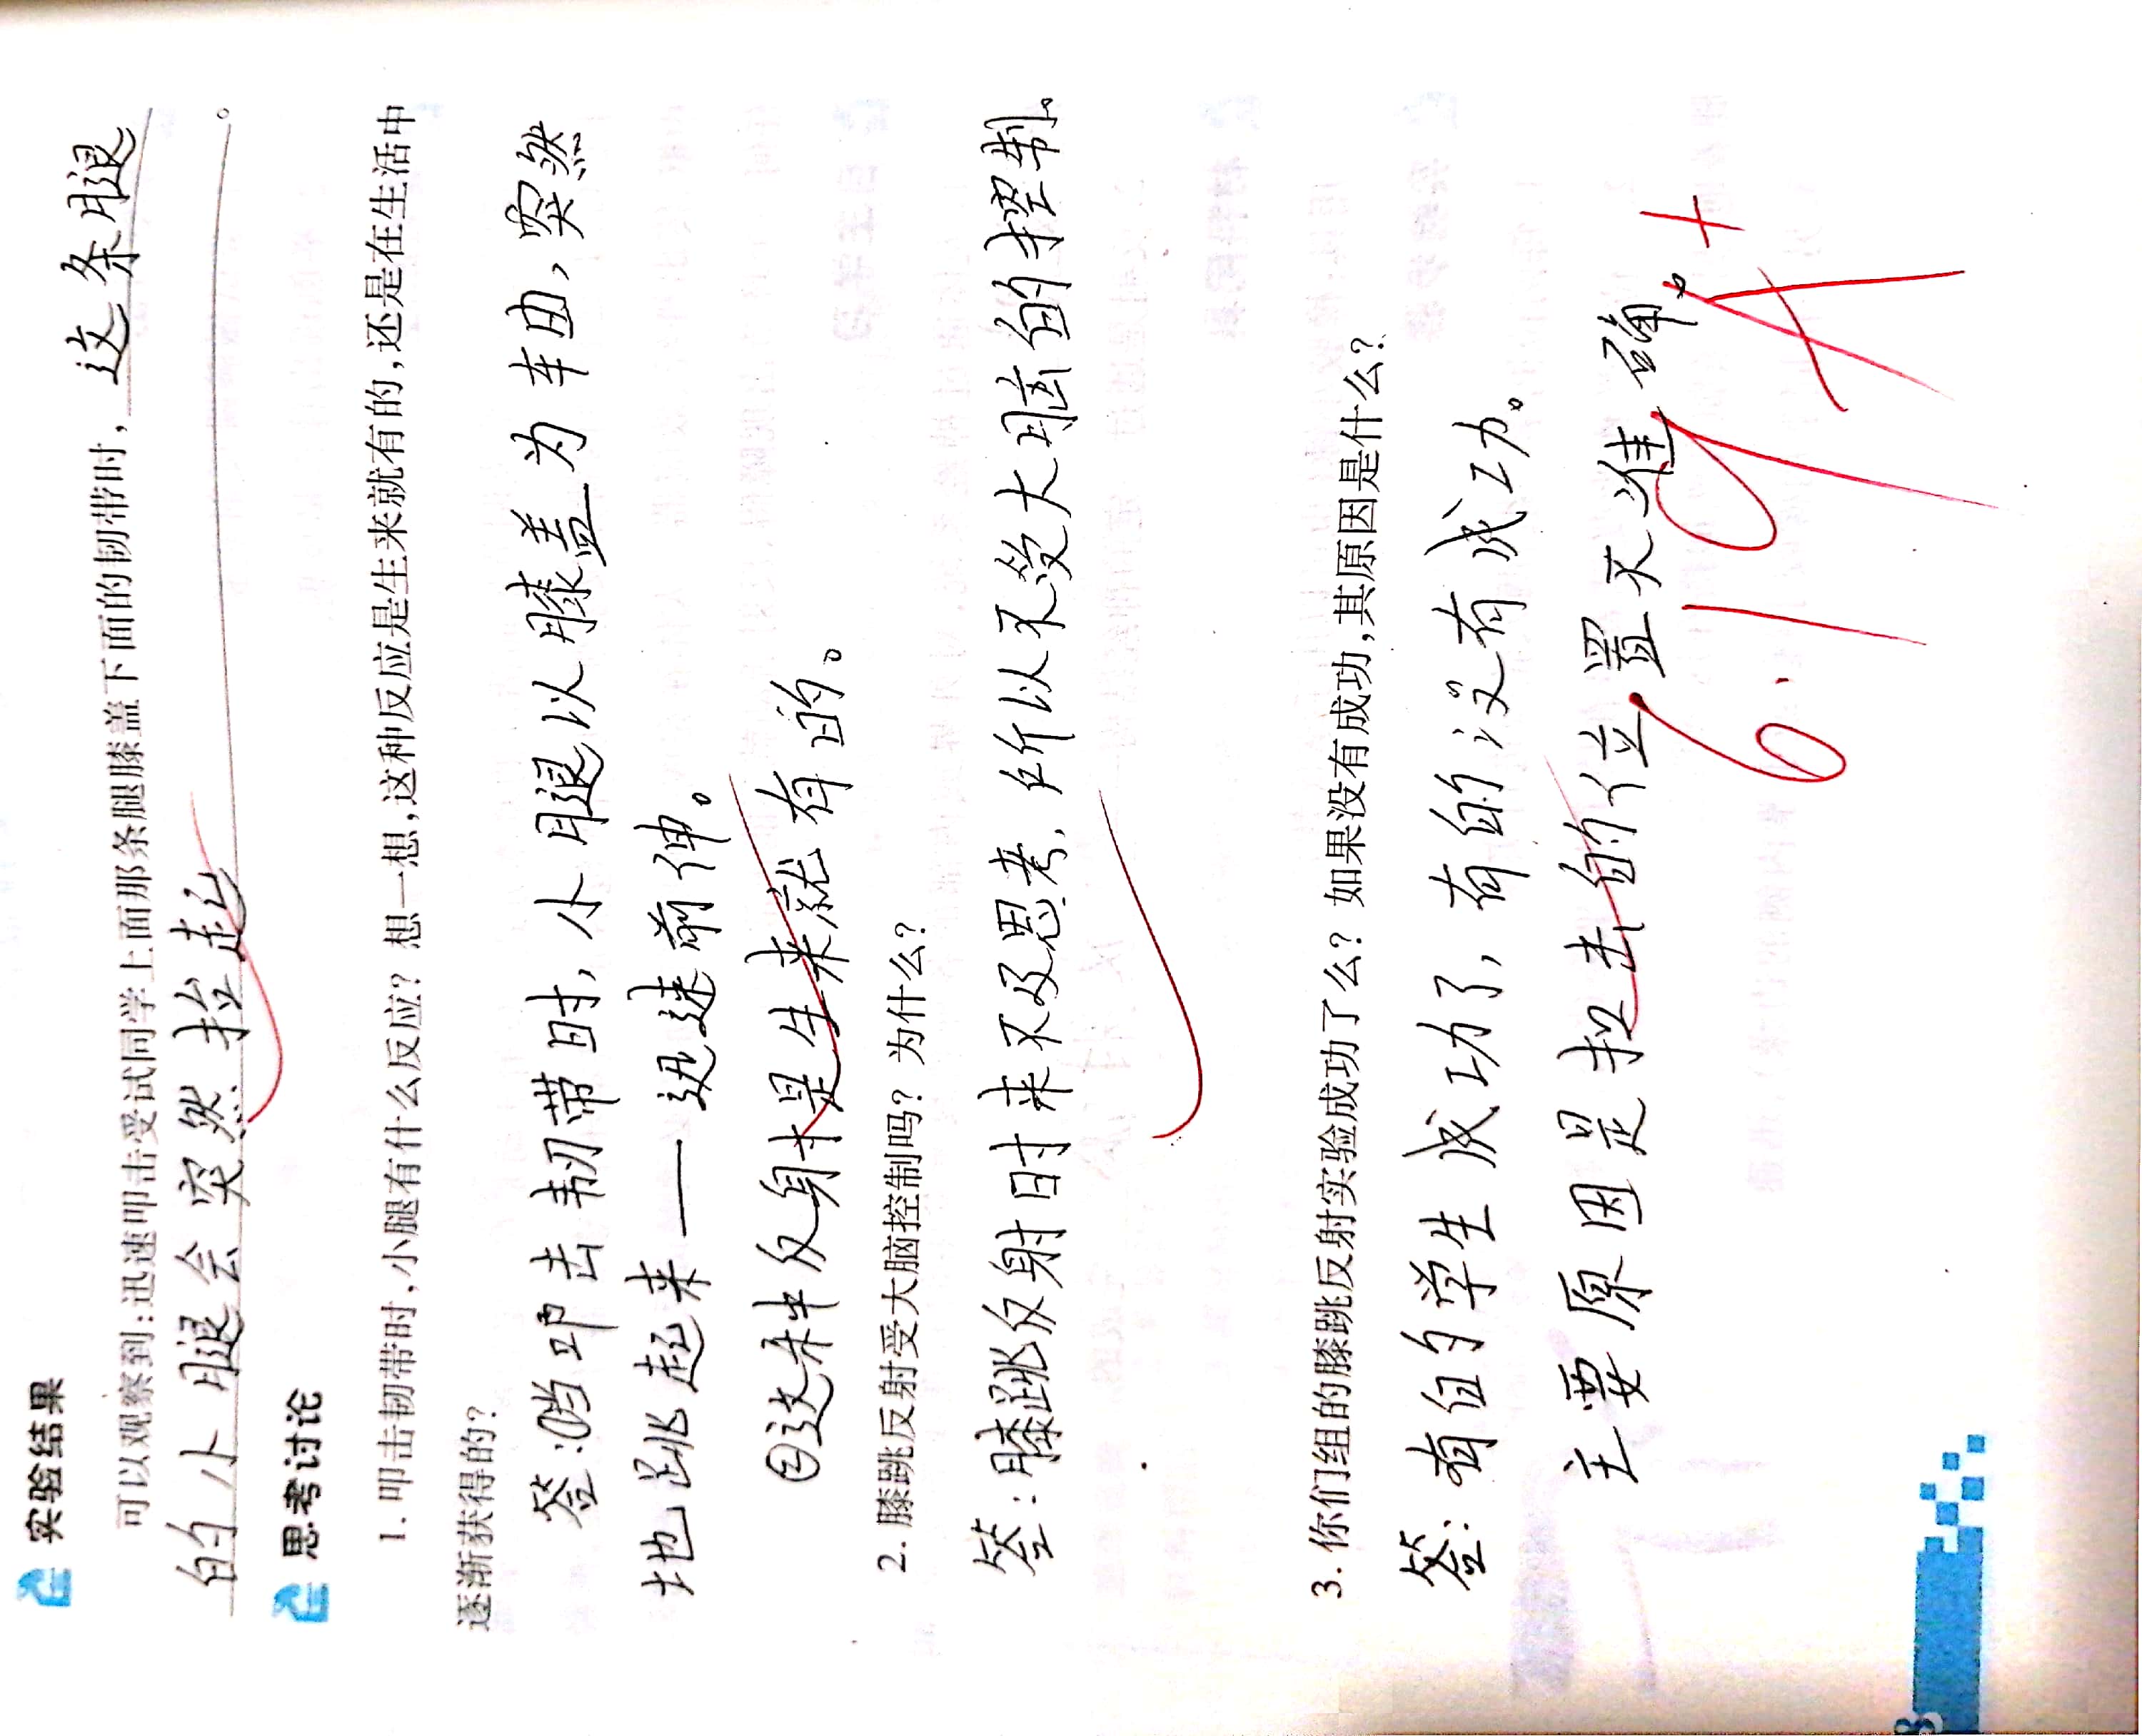 实验结果
可以观察到:迅速叩击受试同学上面那条腿膝盖下面的韧带时,这条腿
的小腿会突然抬起。
思考讨论
1. 叩击韧带时,小腿有什么反应?想一想,这种反应是生来就有的,还是在生活中
逐渐获得的?
答:①当叩击韧带时,小腿以膝盖为车由,突然
地跳起来——迅速前伸。
②这种反射是生来就有的。
2. 膝跳反射受大脑控制吗?为什么?
答:膝跳反射时来不及思考,所以不受大脑的控制。
3. 你们组的膝跳反射实验成功了么?如果没有成功,其原因是什么?
答:有的学生成功了,有的没有成功。
主要原因是扣击的位置不准确。
6.19 A+
8